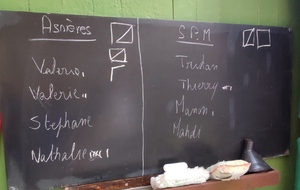 Asnières
Valerie
Valerie
Stephane
Nathalie
S.P.M
Tristan
Thierry
Manon
Mahdi